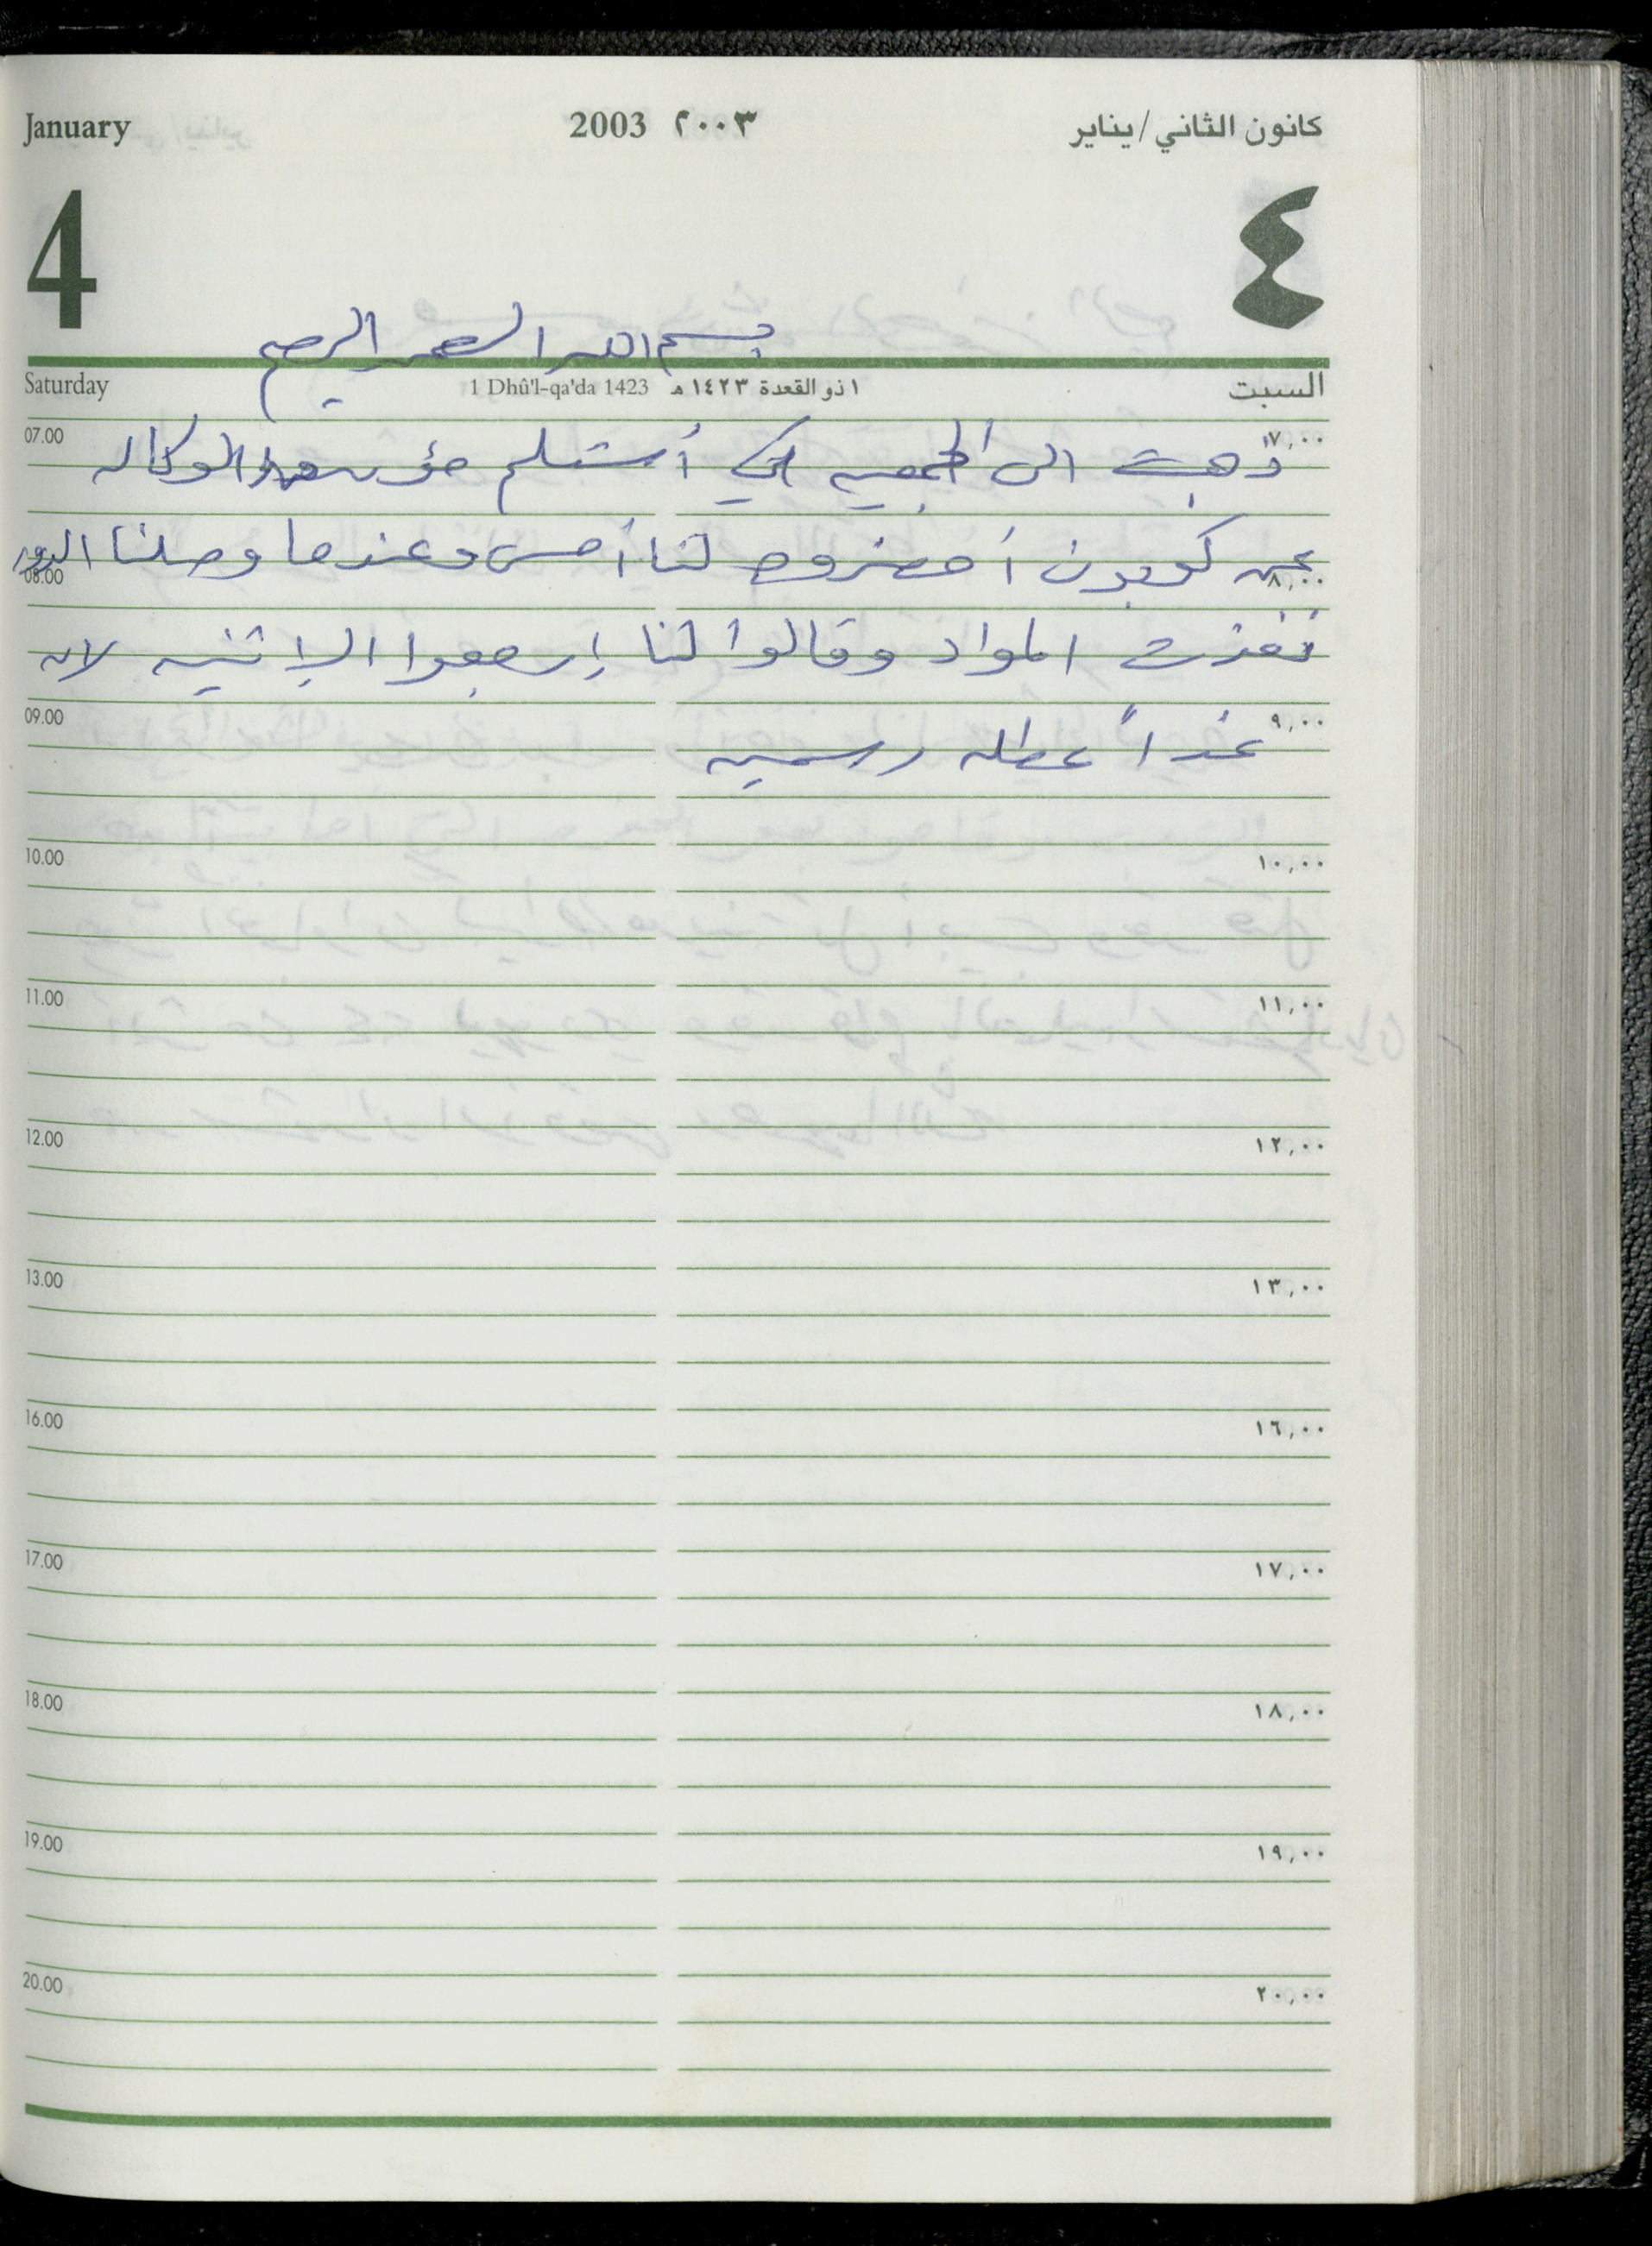 January 2003 ٢٠٠٣ كانون الثاني/يناير
4 ٤
بسم الله الرحمن الرحيم
Saturday 1 Dhû'l-qa'da 1423 ١ ذو القعدة ١٤٢٣ هـ السبت
07.00 ٧,٠٠
ذهبت الى الجمعيه لكي أستلم مؤن الوكاله
08.00 ٨,٠٠
عن كوبون أحضروه لنا أمس وعندما وصلنا الدور
نفذت المواد وقالوا لنا إرجعوا الإثنين لان
09.00 ٩,٠٠
غداً عطله رسميه
10.00 ١٠,٠٠
11.00 ١١,٠٠
12.00 ١٢,٠٠
13.00 ١٣,٠٠
16.00 ١٦,٠٠
17.00 ١٧,٠٠
18.00 ١٨,٠٠
19.00 ١٩,٠٠
20.00 ٢٠,٠٠